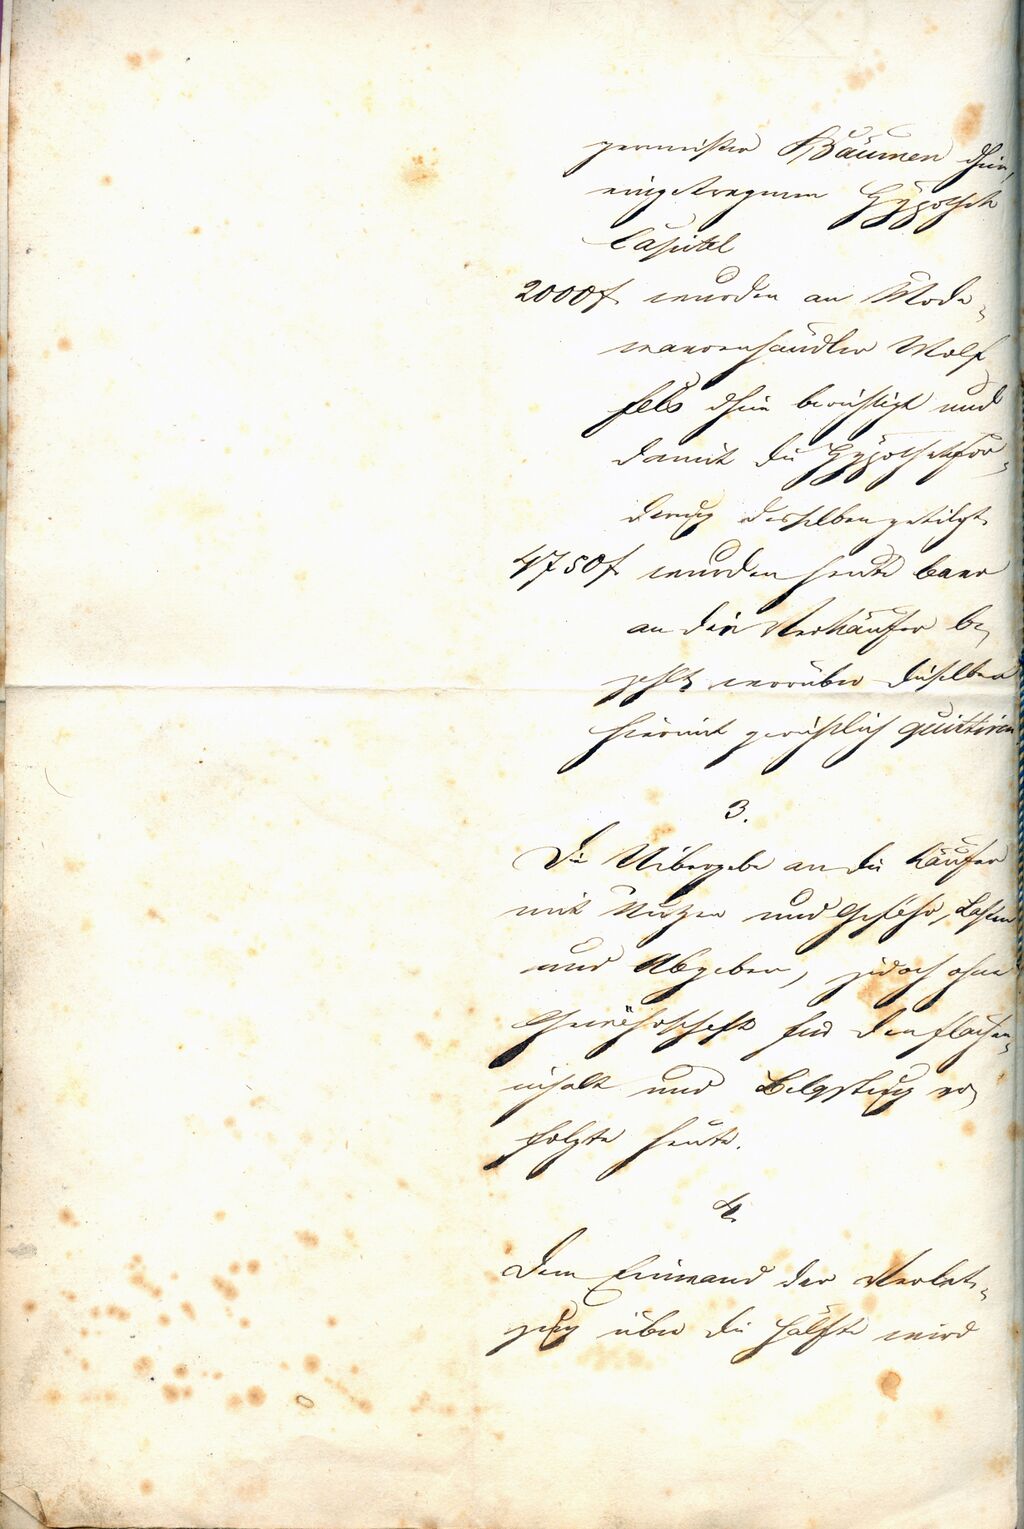 germeister Bäumen dhier,
eingetragenen Hypothek
Capitel
2000f wurden an Mode-
waarenhändler Wolf
fels dhier berichtigt und
damit die Hypothekfor-
derung desselben getilgt.
4750f wurden heute baar
an die Verkäufer be-
zahlt worüber dieselben
hiermit gerichtlich quittiren
3.
Die Uibergabe an die Käufer
mit Nutzen und Gefahr, Lasten
und Abgaben, jedoch ohne
Gewährschaft für den Flächen-
inhalt und Belastung er-
folgte heute.
4.
Dem Einwand der Verlet-
zung über die Hälfte wird